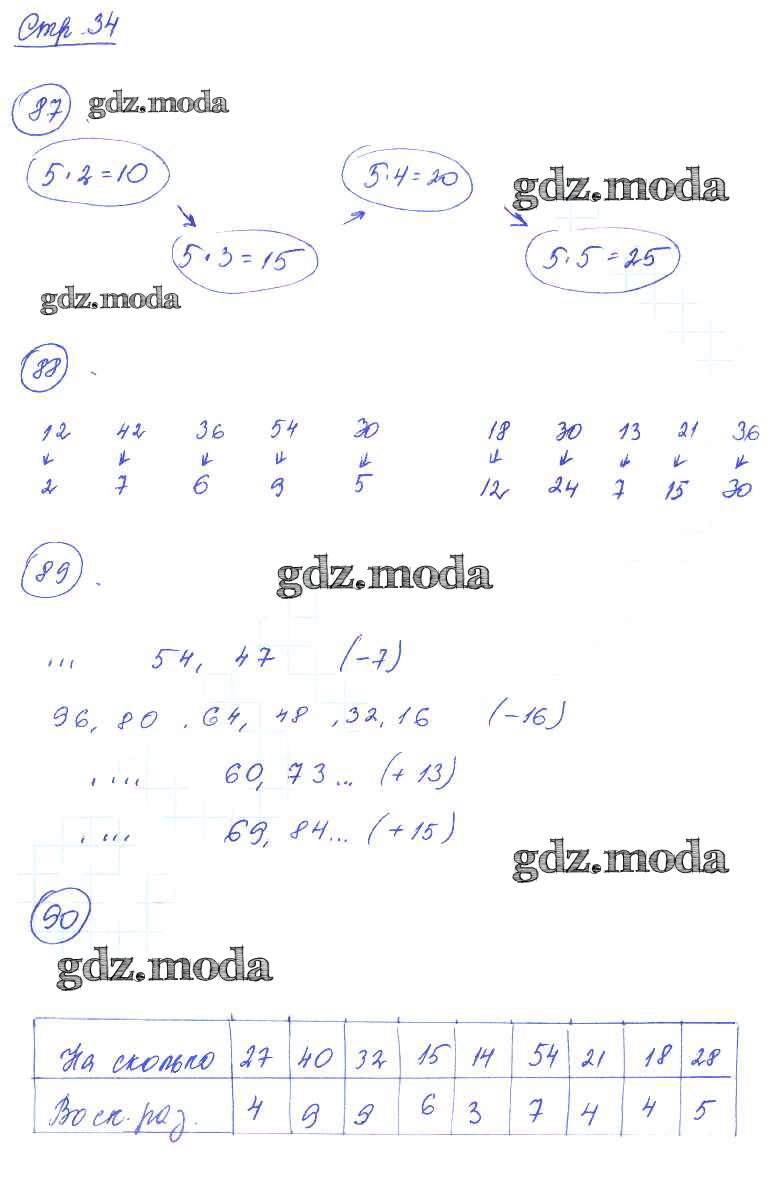 Стр. 34
87 gdz.moda
5·2=10 5·4=20 gdz.moda
5·3=15 5·5=25
gdz.moda
88
12 42 36 54 30 18 30 13 21 36
2 7 6 9 5 12 24 7 15 30
89 gdz.moda
... 54, 47 (-7)
96, 80, 64, 48, 32, 16 (-16)
.... 60, 73... (+13)
.... 69, 84... (+15)
gdz.moda
90
gdz.moda
На сколько 27 40 32 15 14 54 21 18 28
Во ск. раз. 4 9 9 6 3 7 4 4 5